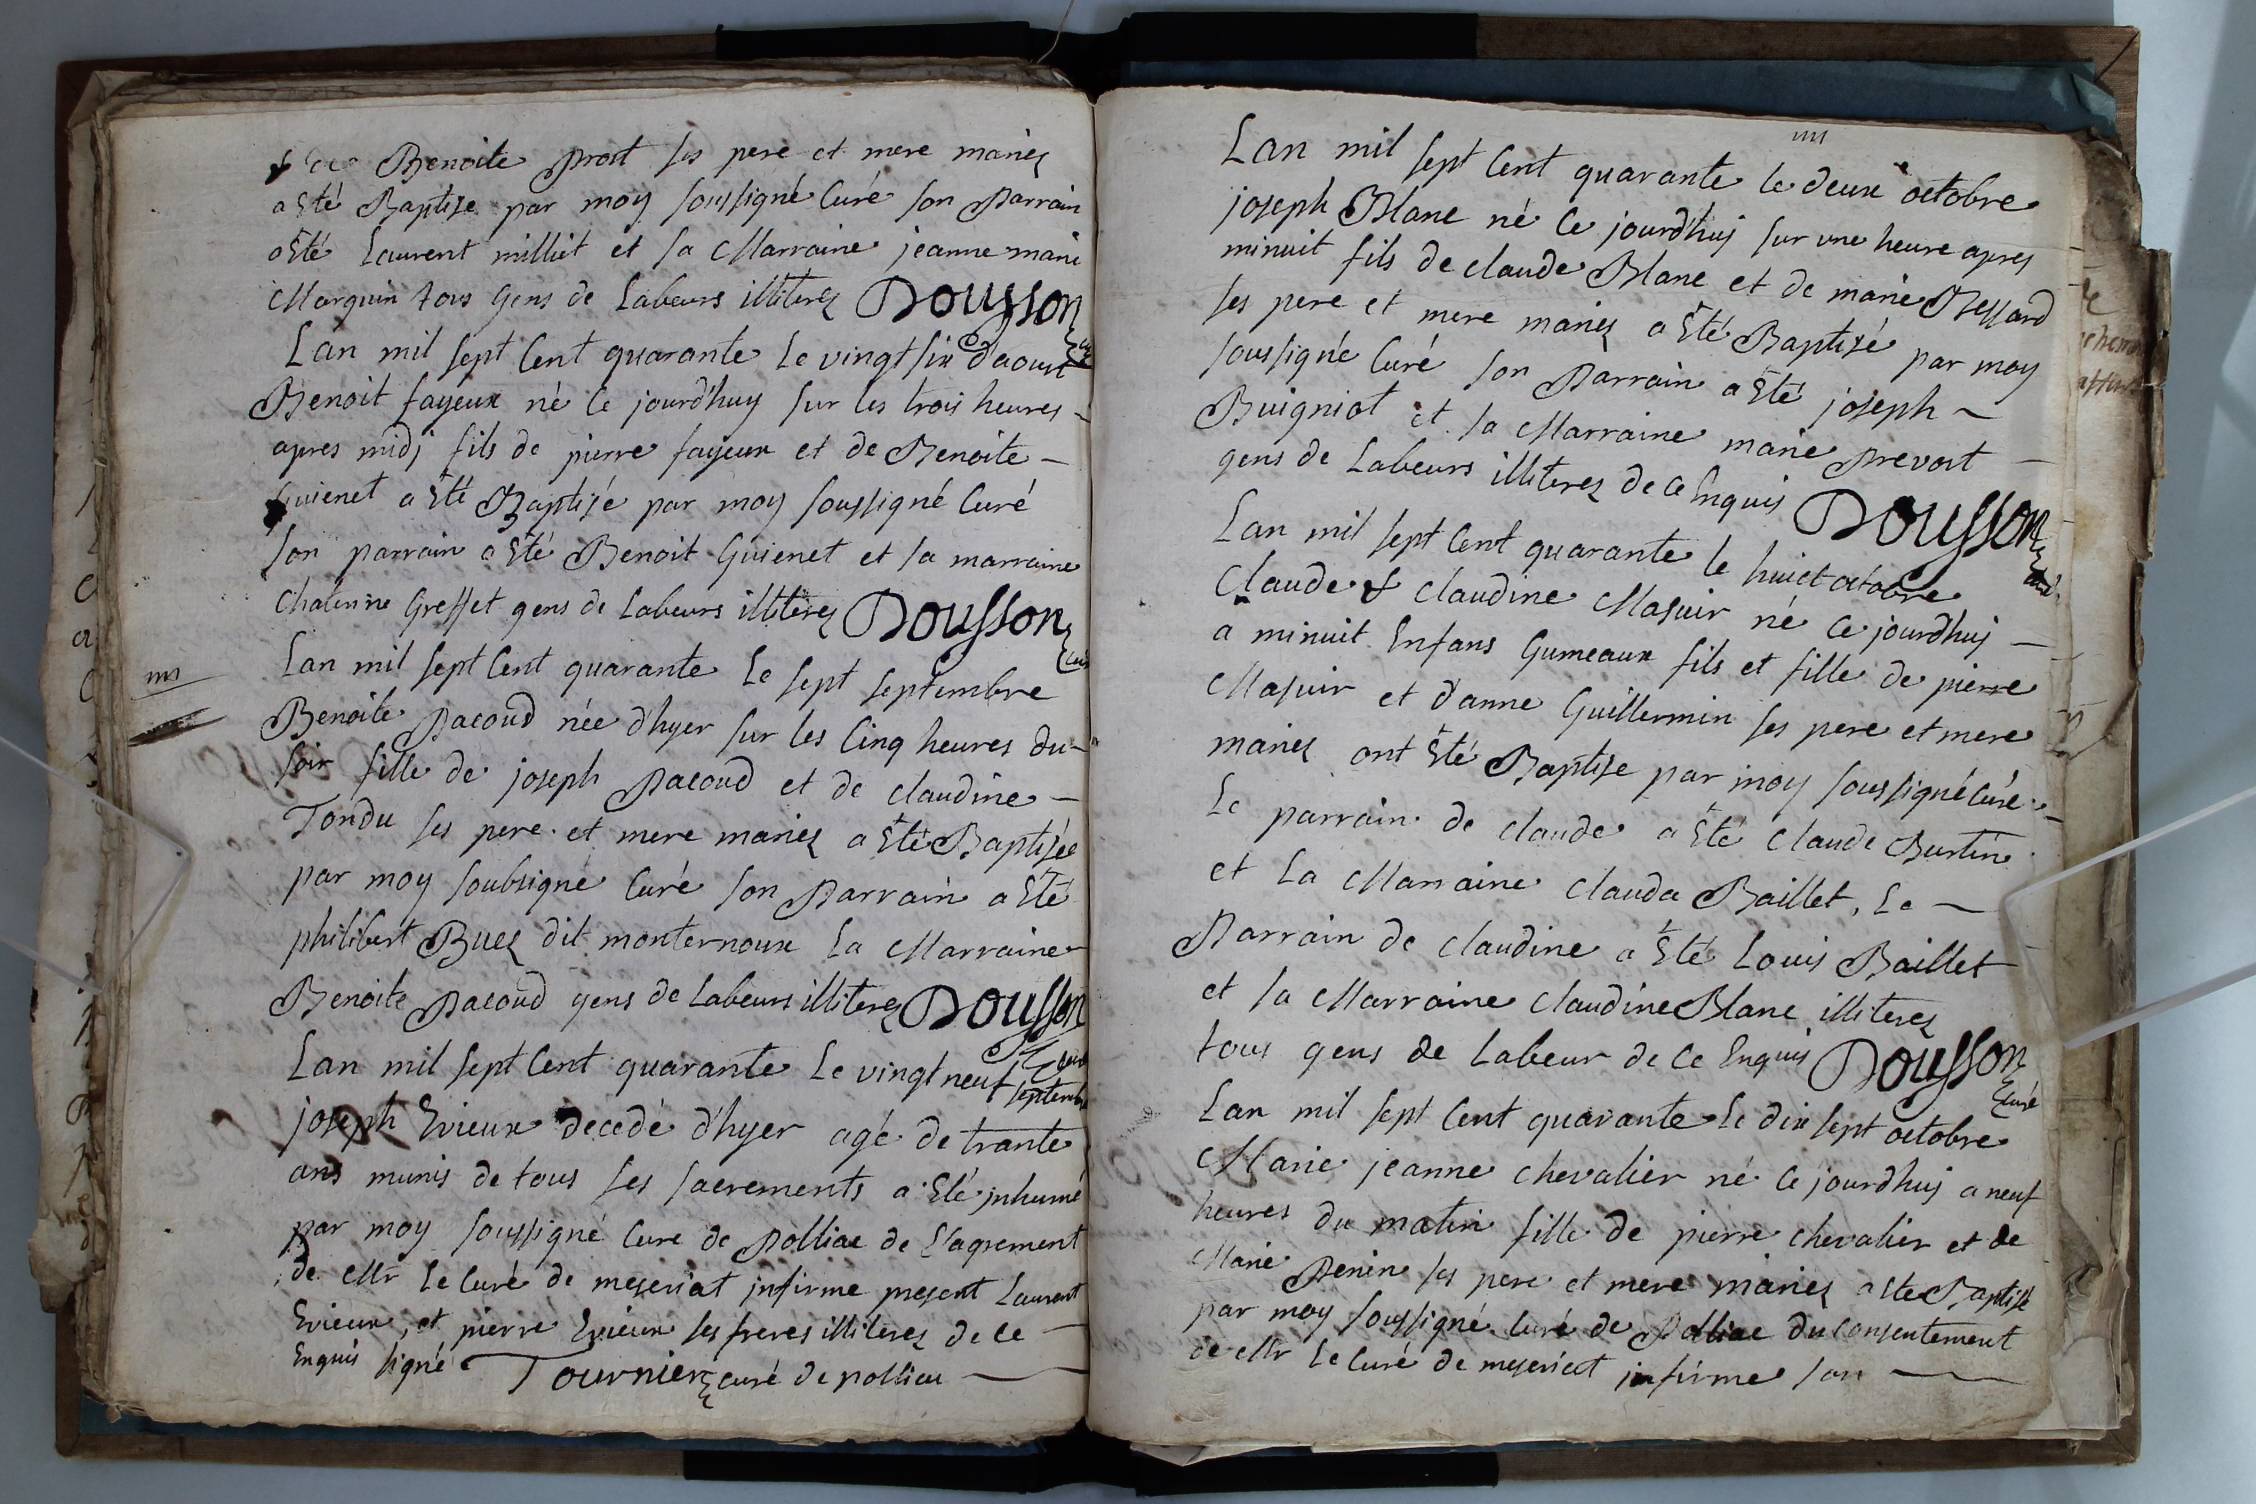 & de Benoite Prost ses pere et mere mariez
a Eté Baptise par moy soussigné Curé son Parrain
a Eté Laurent milliet et sa Marraine jeanne marie
Marguin tous Gens de Labeurs illiterez Dousson
Curé
Lan mil sept Cent quarante Le vingt six d'aoust
Benoit fayeux né Ce jourd'huy sur les trois heures –
apres midj fils de pierre fayeux et de Benoite –
Guienet a Eté Baptisé par moy soussigné Curé
son parrain a Eté Benoit Guienet et sa marraine
Greffet gens de Labeurs illiterez Dousson
Curé
Lan mil sept Cent quarante Le sept septembre
Benoite Pacoud née d'hyer sur les Cinq heures du –
soir fille de joseph Pacoud et de claudine –
Tondu ses pere et mere mariez a Eté Baptisée
par moy soubsigné Curé son Parrain a Eté
philibert Buez dit monternoux La Marraine
Benoite Pacoud gens de Labeurs illiterez Dousson
Curé
Lan mil sept Cent quarante Le vingt neuf septembre
joseph Evieux decedé d'hyer agé de trante
ans munis de tous ses sacrements a Eté jnhumé
par moy soussigné Curé de Polliac de L'agrement
de Mr Le Curé de mezeriat jnfirme present Laurent
Evieux, et pierre Evieux ses freres illiterez de ce –
Enquis signé Tournier curé de polliac
Lan mil sept Cent quarante le deux octobre
joseph Blanc né Ce jourd'huj sur une heure apres
minuit fils de claude Blanc et de marie Tessard
ses pere et mere mariez a Eté Baptisé par moy
soussigné Curé son Parrain a Eté joseph –
Buigniot et sa Marraine marie Prevost –
gens de Labeurs illiterez de ce Enquis Dousson
Curé
Lan mil sept Cent quarante le huict octobre
Claude & claudine Masuir né Ce jourdhuj –
a minuit Enfans Gumeaux fils et fille de pierre
Masuir et d'anne Guillermin ses pere et mere
mariez ont Eté Baptise par moy soussigné Curé
Le parrain de claude a Eté Claude Burtin
et La Marraine clauda Baillet, Le –
Parrain de claudine a Eté Louis Baillet
et sa Marraine claudine Blanc illiterez
tous gens de Labeur de Ce Enquis Dousson
Curé
Lan mil sept Cent quarante Le dix sept octobre
Marie jeanne chevalier né Ce jourdhuj a neuf
heures du matin fille de pierre chevalier et de
Marie Penin ses pere et mere mariez a Eté Baptisé
par moy soussigné Curé de Polliac du Consentement
de Mr Le Curé de mezeriat jnfirme son